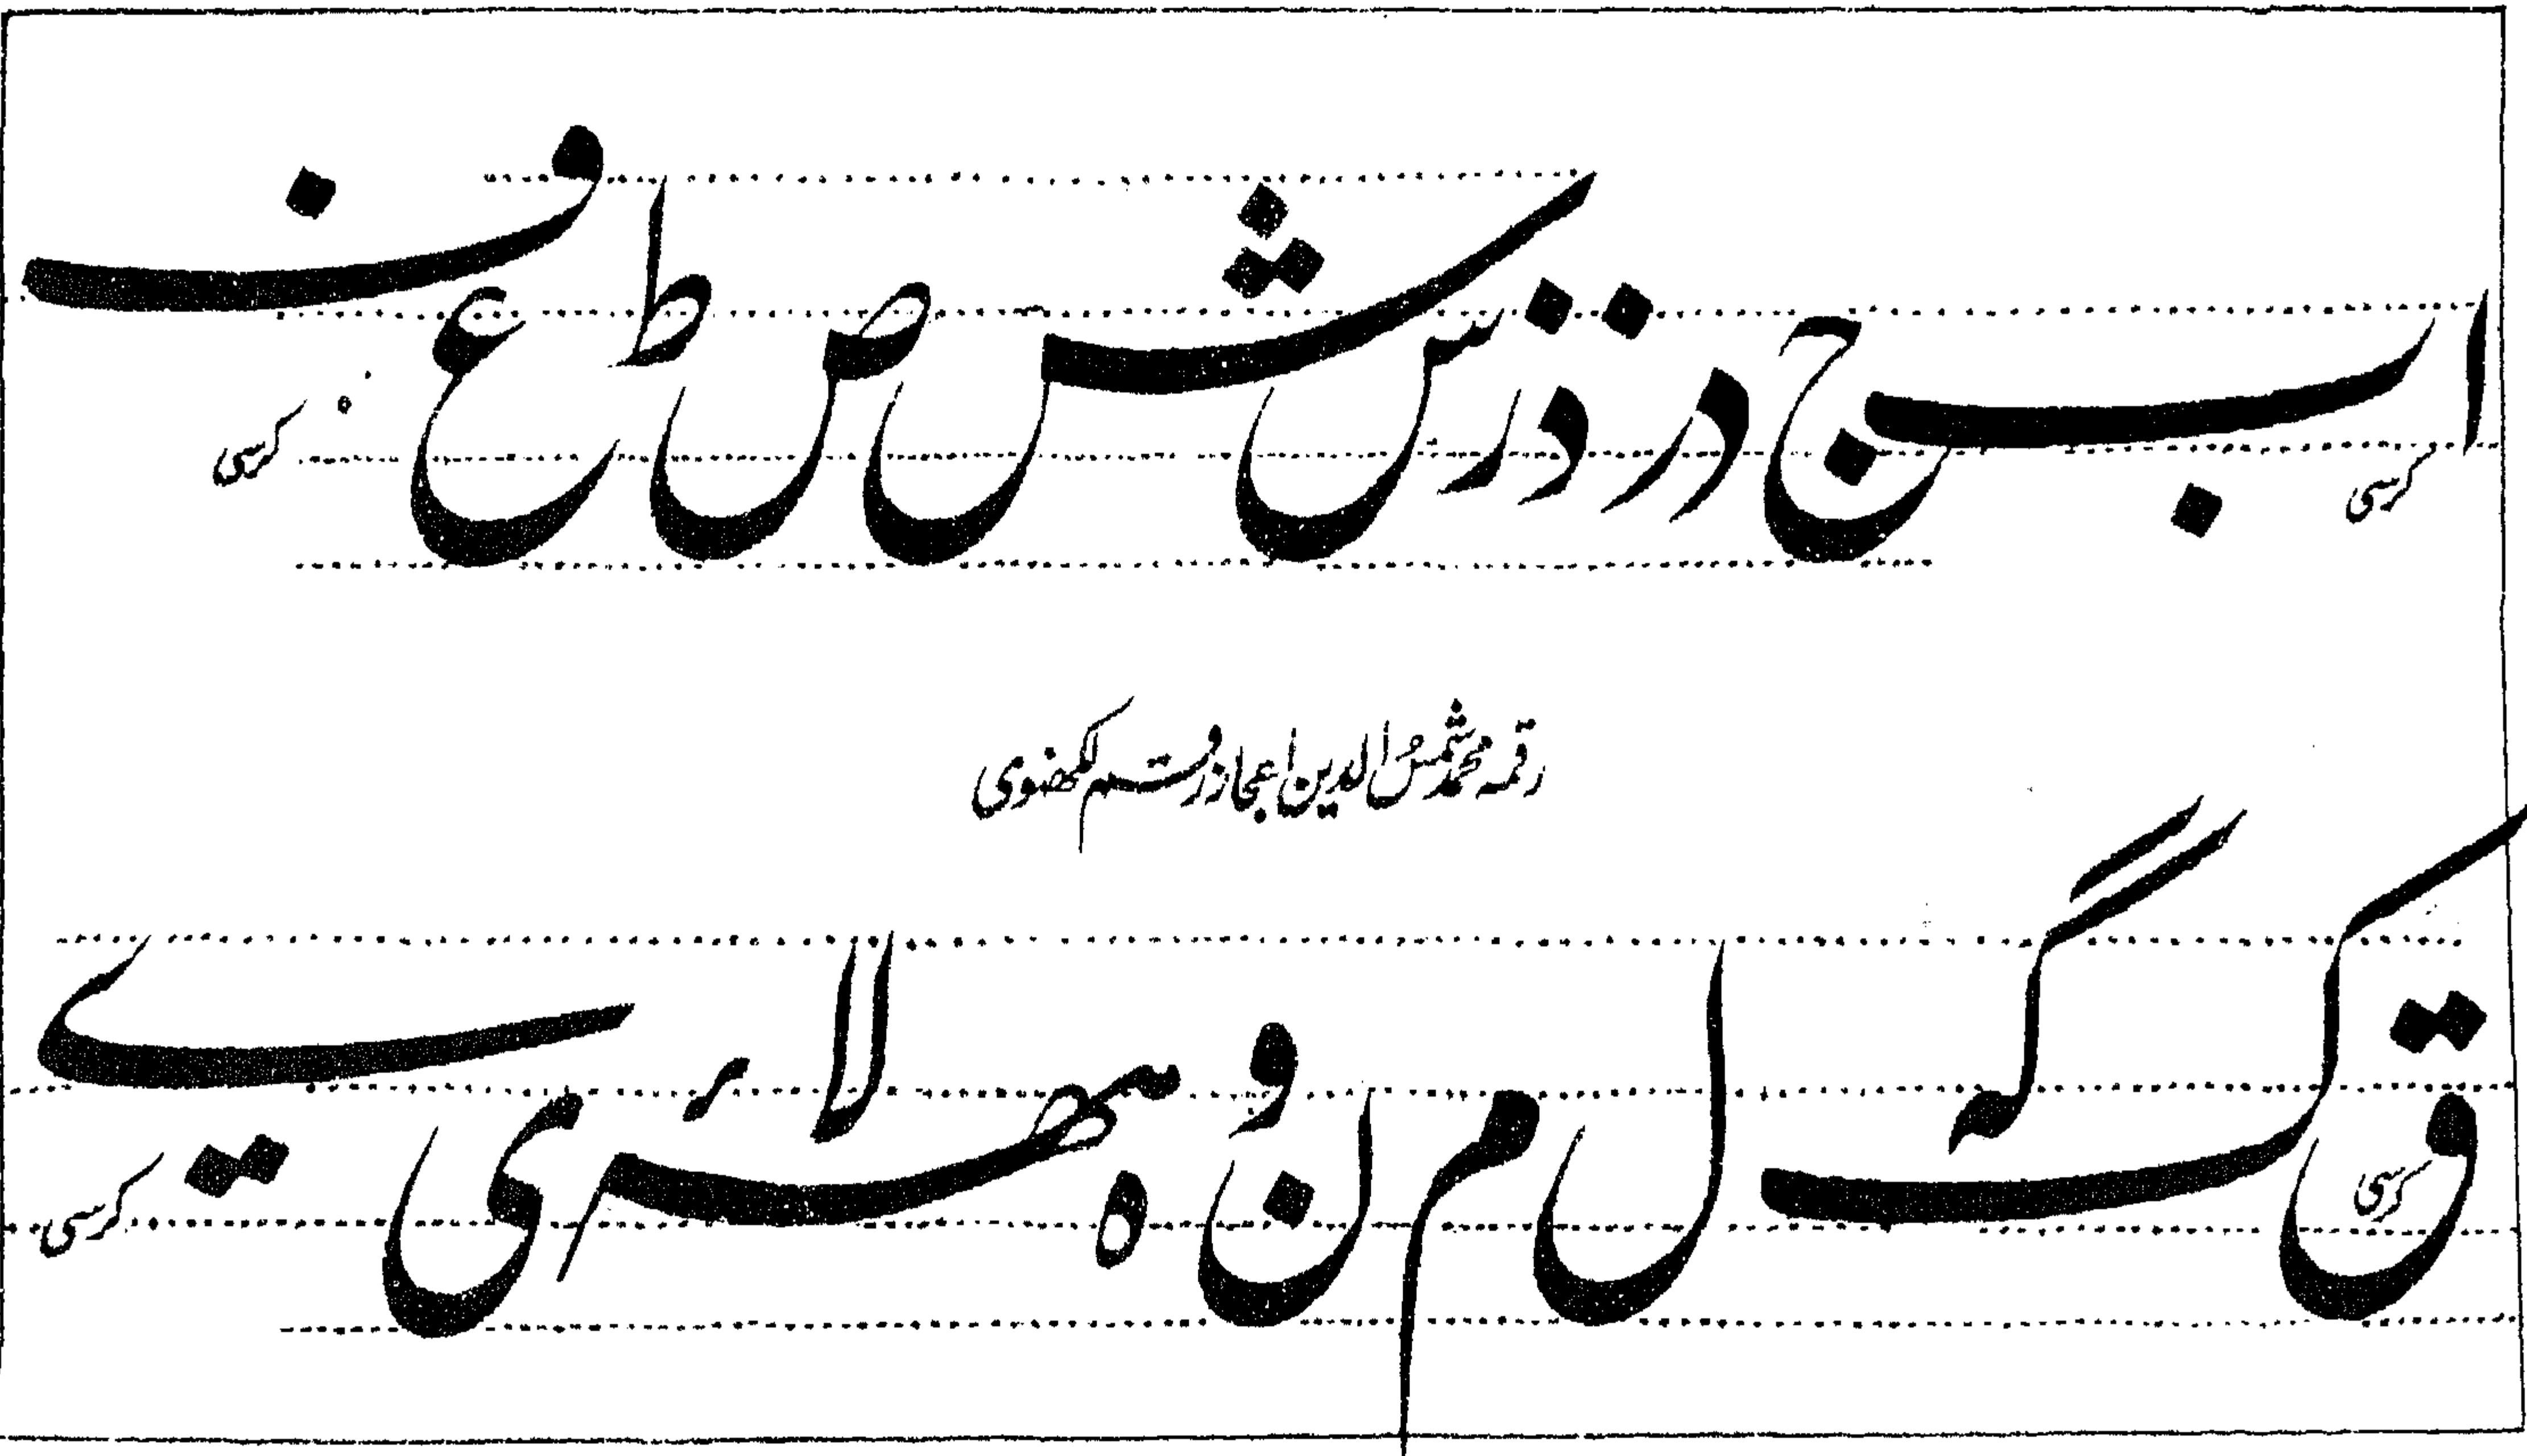 ا ب ج د ذ ر ز س ش ص ط ع ف
کرسی کرسی
رقمہ محمد شمس الدین اعجاز رقم لکھنوی
ق ک گ ل م ن و ہ ھ لا ء ی ے
کرسی کرسی